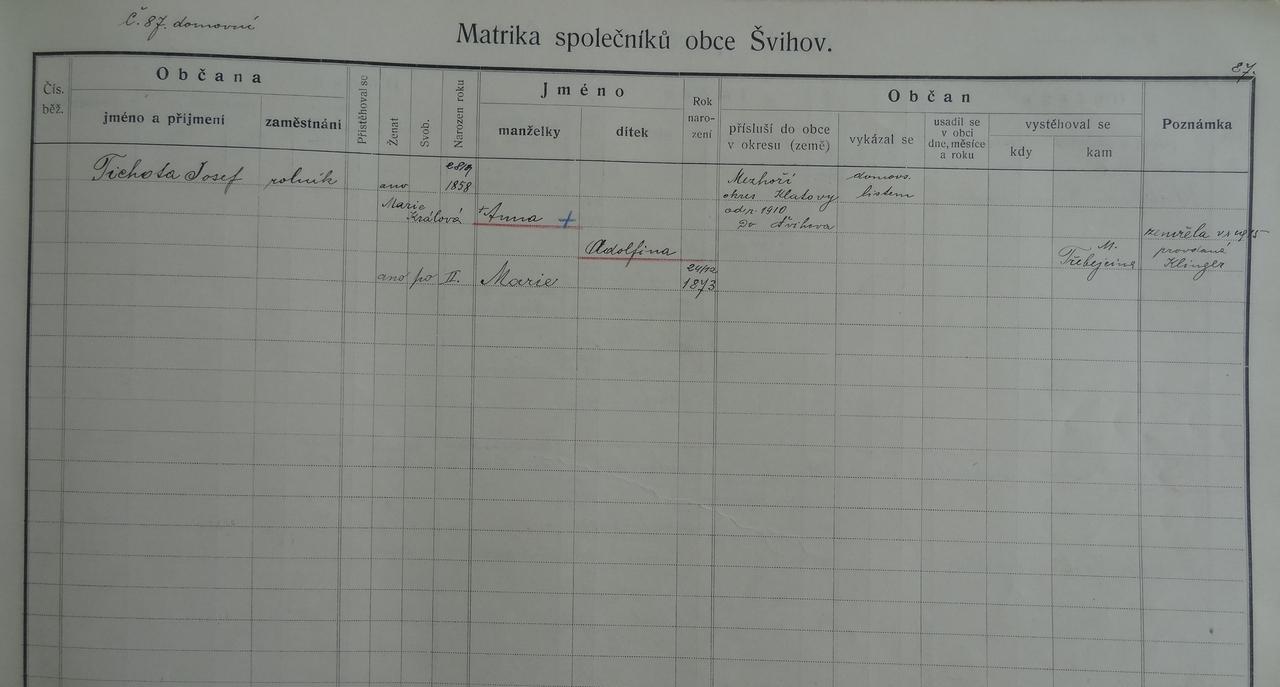 Č. 87. domovní
Matrika společníků obce Švihov.
87.
Čís. běž.
Občana
jméno a přijmení
zaměstnání
Přistěhoval se
Ženat
Svob.
Narozen roku
Jméno
manželky
dítek
Rok naro- zení
Občan
přísluší do obce v okresu (země)
vykázal se
usadil se v obci dne, měsíce a roku
vystěhoval se
kdy
kam
Poznámka
Tichota Josef rolník ano 1858 Mezhoří domovs.
okres Klatovy listem
Marie Králová + Anna + od r. 1910
do Švihova
zemřela v r.
Adolfina M. Třebejcina provdaná Klinger
ano po II. Marie 24/12 1873